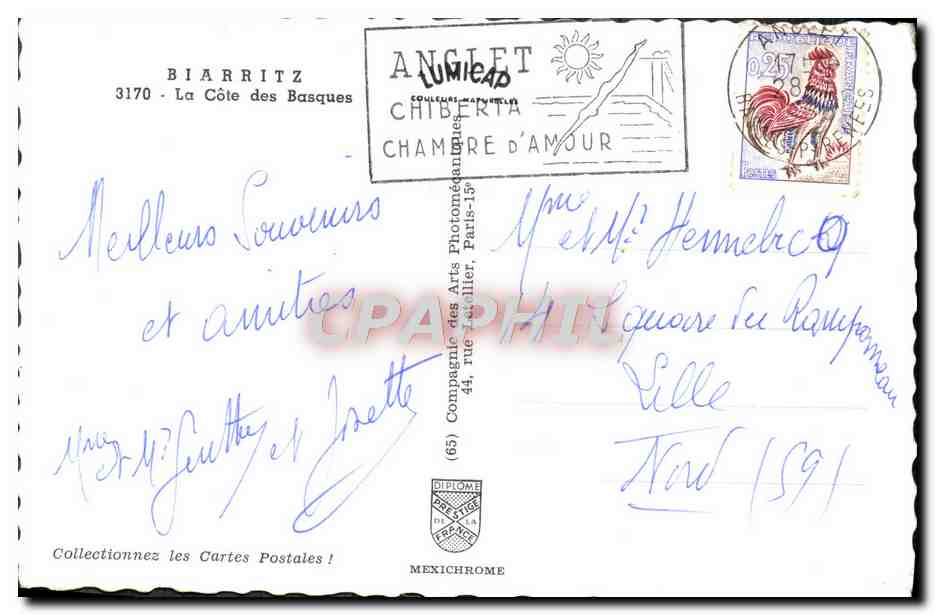 BIARRITZ
3170 - La Côte des Basques
ANGLET
LUMICAP
COULEURS NATURELLES
CHIBERTA
CHAMBRE D'AMOUR
ANGLET
17 -
28 -
PYRENEES
0,25
POSTES
Meilleurs Souvenirs
et amitiés
Mme et Mr et Josette
Collectionnez les Cartes Postales !
(65) Compagnie des Arts Photomécaniques
44, rue Letellier, Paris-15e
DIPLOME
PRESTIGE
DE LA
FRANCE
MEXICHROME
CPAPHIL
Mme et Mr
4 Square du Ramponneau
Lille
Nord (59)